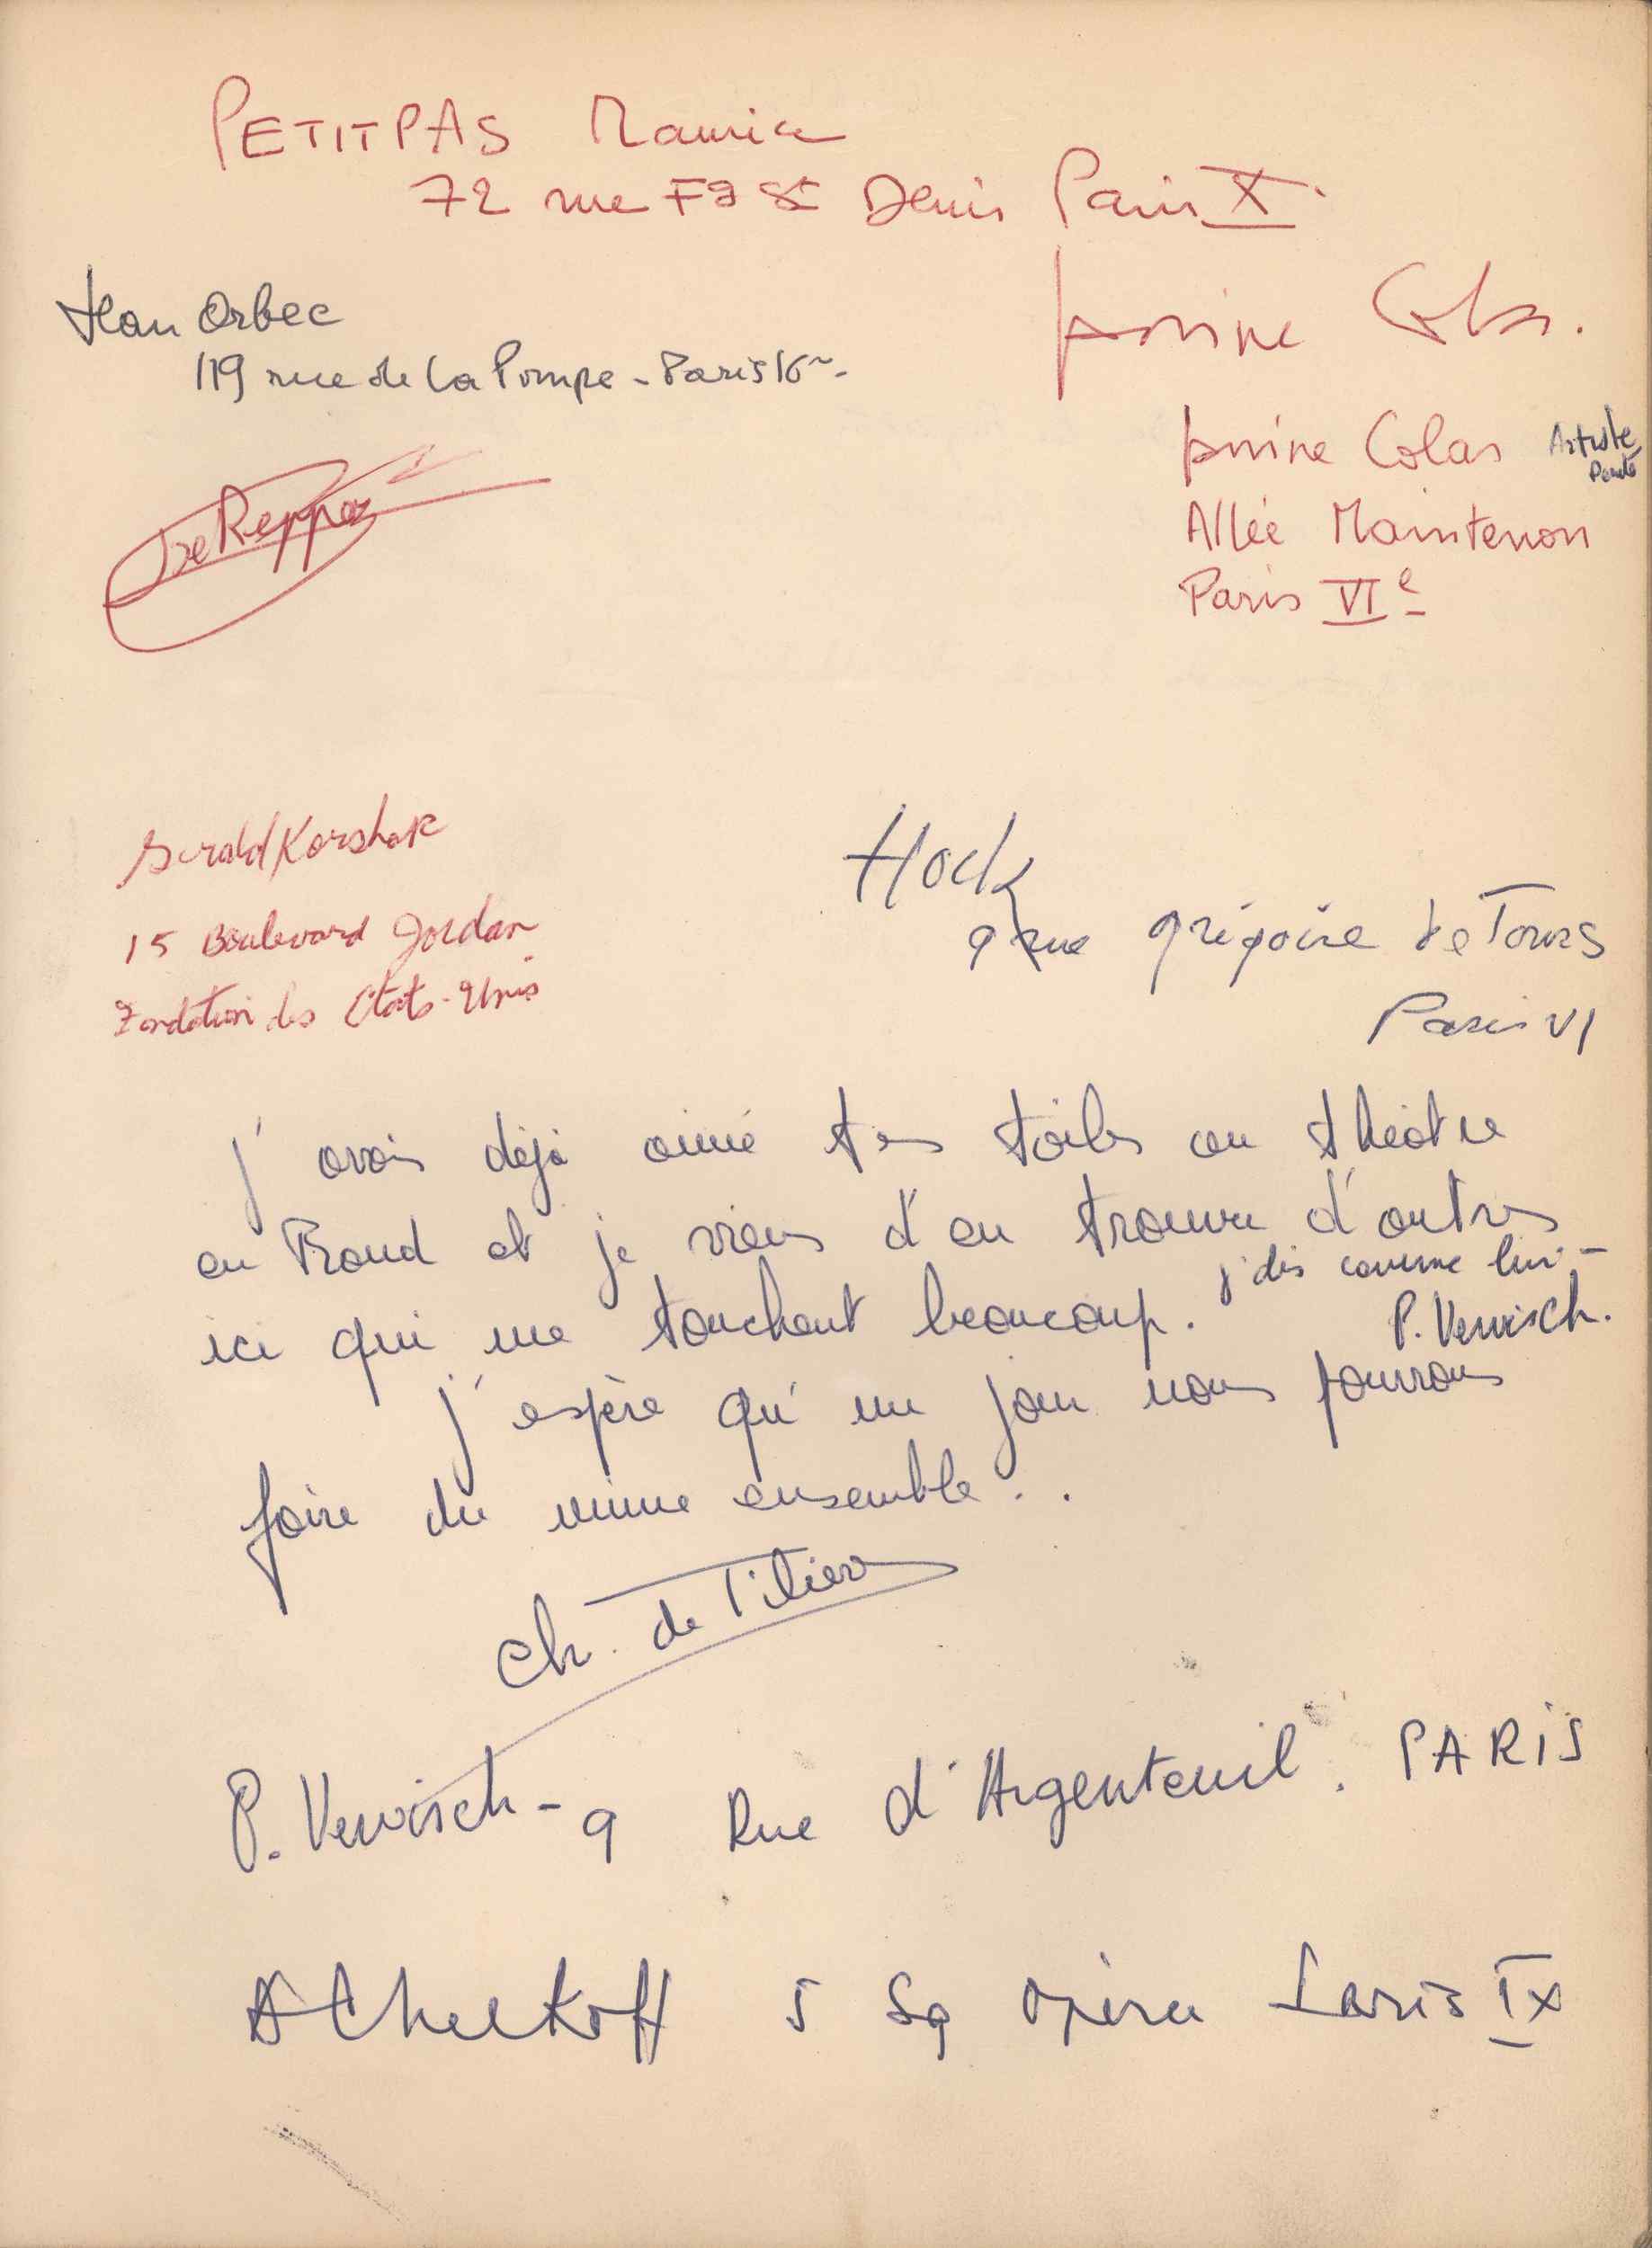 PETITPAS Maurice
72 rue Fg St Denis Paris X
Jean Orbec
119 rue de la Pompe - Paris 16
Janine Colas.
Janine Colas Artiste
Allée Maintenon
Paris VIe
Gerald Korshak
15 Boulevard Jordan
Fondation des Etats-Unis
Hock
9 rue Grégoire de Tours
Paris VI
J'avais déjà aimé tes toiles au théâtre
en Rond et je viens d'en trouver d'autres
ici qui me touchent beaucoup.
j'dis comme lui -
P. Vervisch.
J'espère qu'un jour nous pourrons
faire du mime ensemble..
Ch. de Tilière
P. Vervisch - 9 Rue d'Argenteuil. PARIS
5 Sq Opéra Paris IX